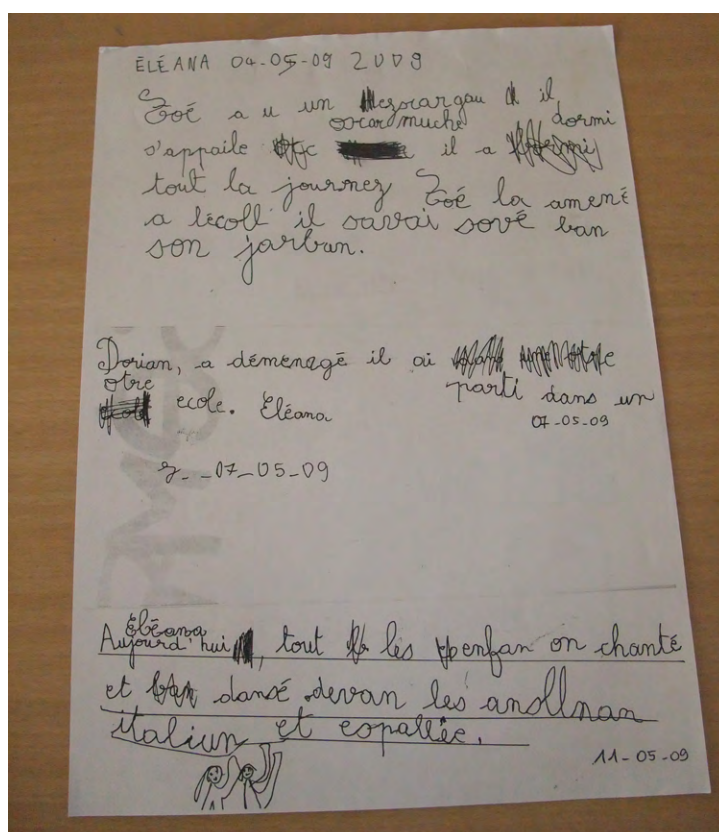 ÉLÉANA 04-05-09 2009
Zoé a u un escargau il
oscar muche dormi
s'appaile il a
tout la journez Zoé la amené
a lécoll il savai sové ban
son jarban.
Dorian, a déménagé il ai
otre parti dans un
ecole. Eléana
07-05-09
07-05-09
Éléana
Aujourd'hui, tout les enfan on chanté
et dansé devan les anollnan
italiun et espallée.
11-05-09